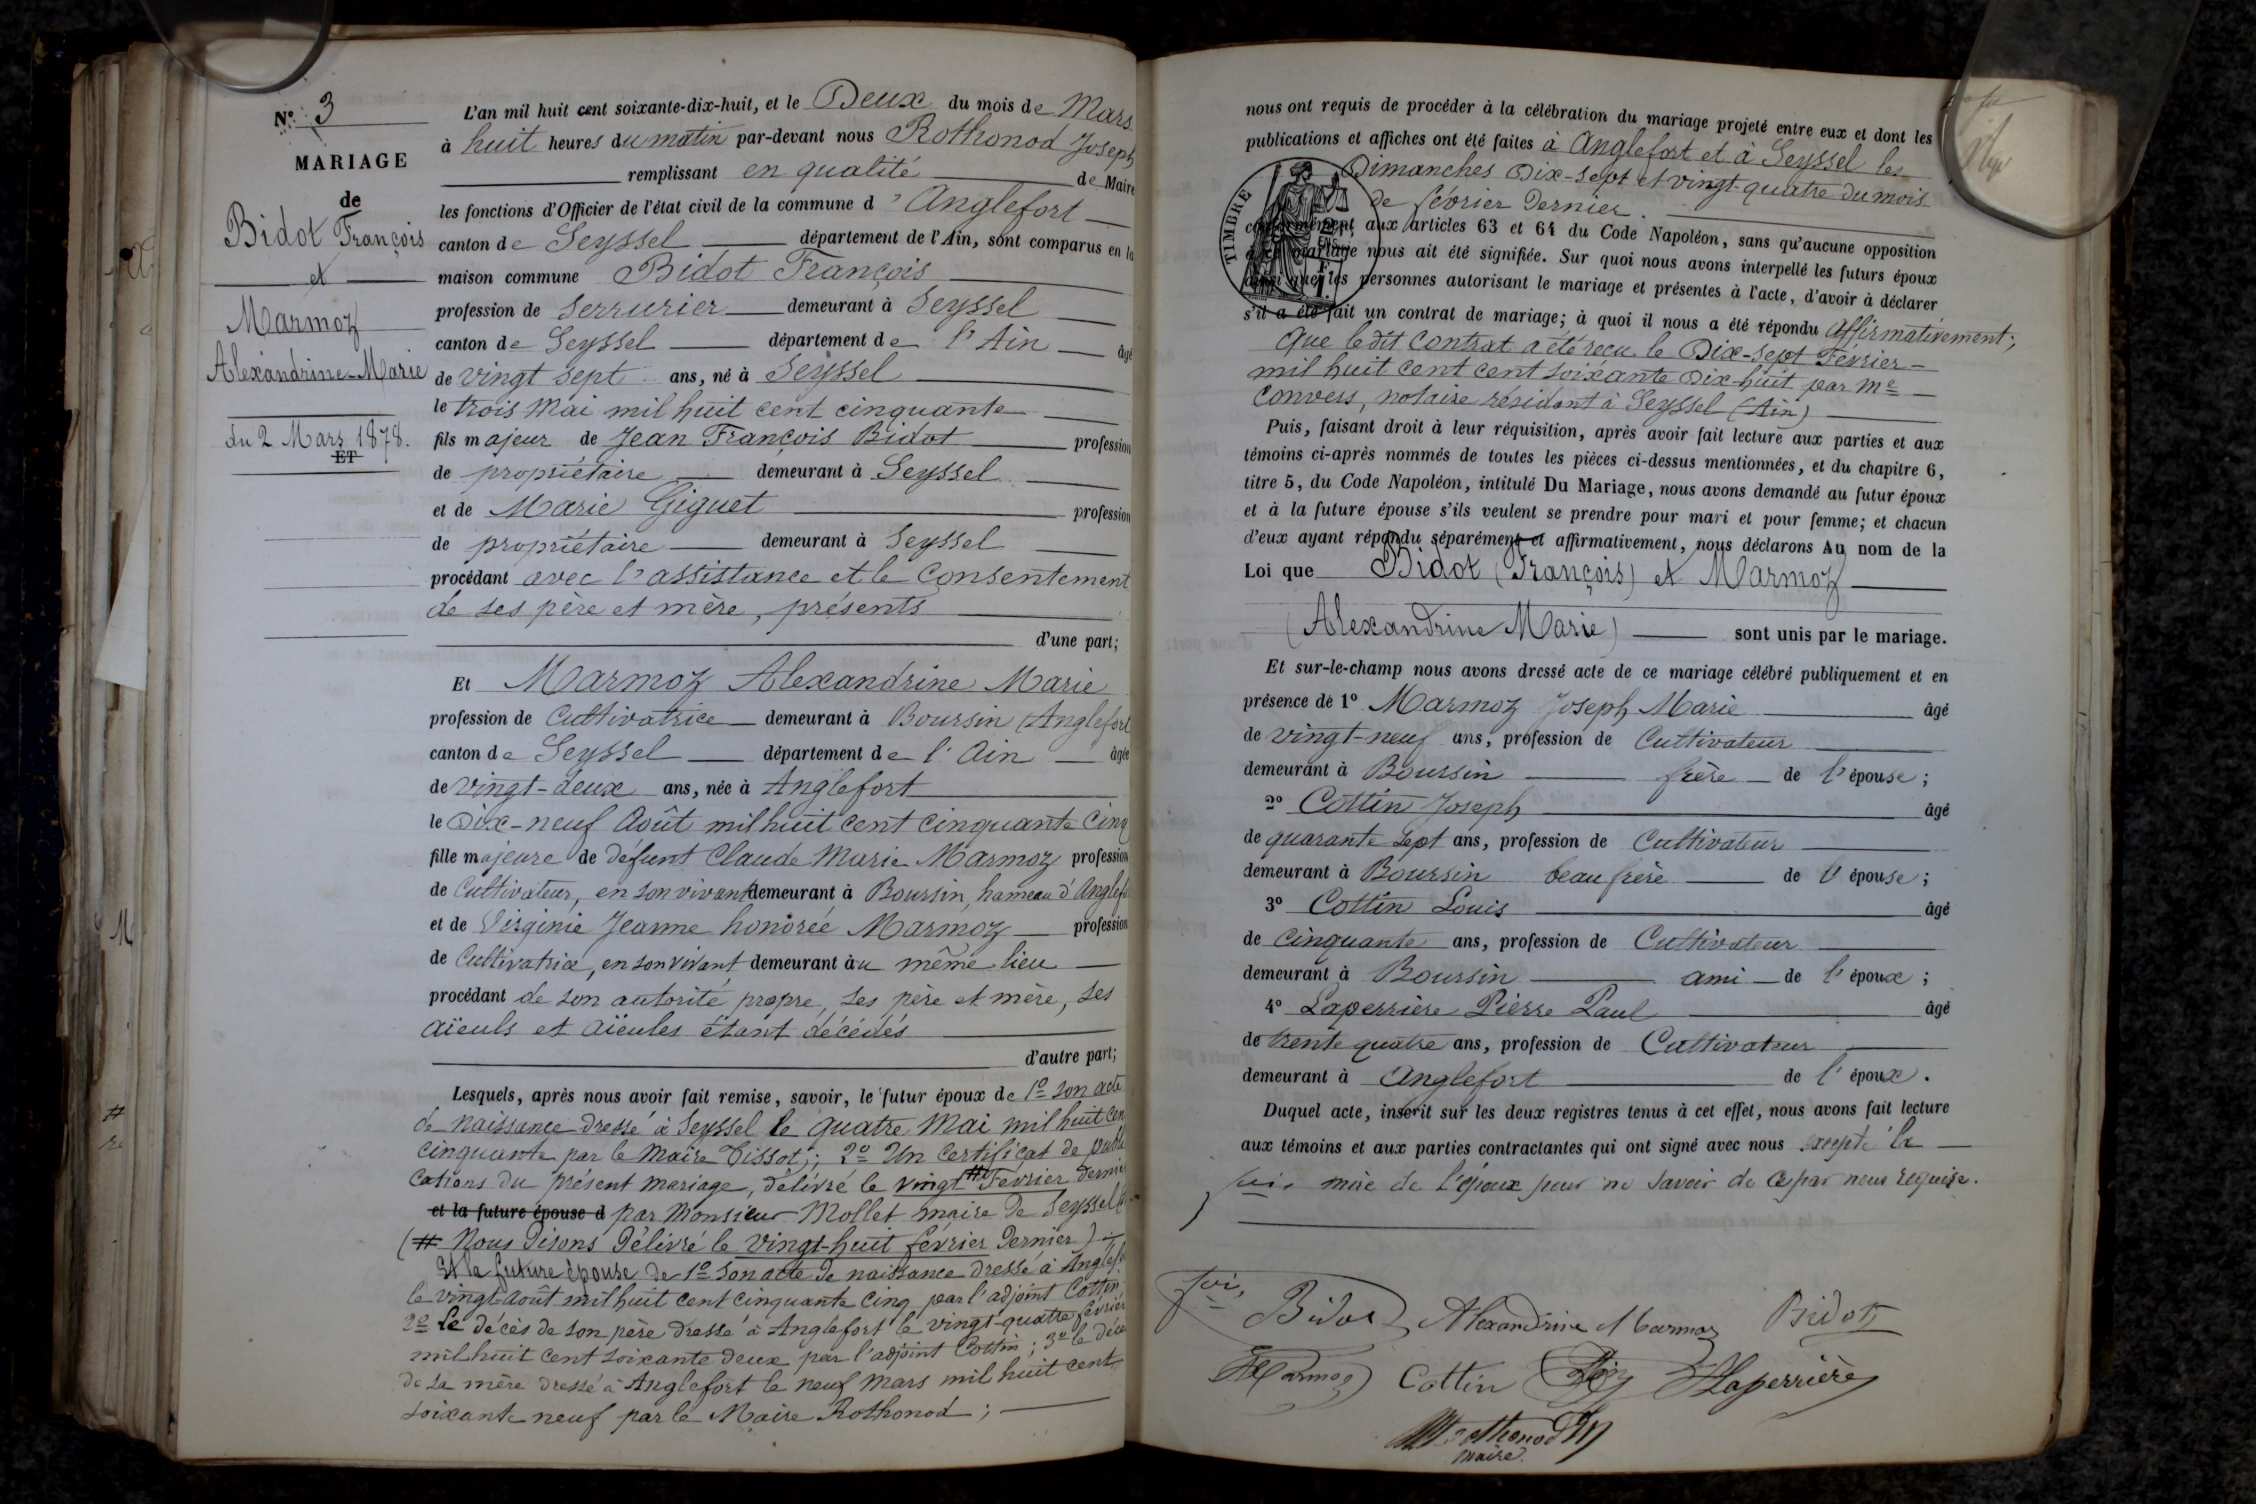 N° 3
MARIAGE
de
Bidot François
et
Marmoz
Alexandrine-Marie
du 2 Mars 1878.
ET
L'an mil huit cent soixante-dix-huit, et le Deux du mois de Mars
à huit heures du matin par-devant nous Rothonod Joseph
remplissant en qualité de Maire
les fonctions d'Officier de l'état civil de la commune d'Anglefort
canton de Seyssel département de l'Ain, sont comparus en la
maison commune Bidot François
profession de Serrurier demeurant à Seyssel
canton de Seyssel département de l'Ain âgé
de vingt sept ans, né à Seyssel
le trois Mai mil huit cent cinquante
fils majeur de Jean François Bidot profession
de propriétaire demeurant à Seyssel
et de Marie Giguet profession
de propriétaire demeurant à Seyssel
procédant avec l'assistance et le Consentement
de ses père et mère, présents
d'une part;
Et Marmoz Alexandrine Marie
profession de Cultivatrice demeurant à Boursin (Anglefort
canton de Seyssel département de l'Ain âgée
de vingt-deux ans, née à Anglefort
le Dix-neuf Août mil huit cent cinquante Cinq
fille majeure de défunt Claude Marie Marmoz profession
de Cultivateur, en son vivant demeurant à Boursin, hameau d'Anglefo
et de Virginie Jeanne honorée Marmoz profession
de Cultivatrice, en son vivant demeurant au même lieu
procédant de son autorité propre, ses père et mère, ses
aïeuls et aïeules étant décédés
d'autre part;
Lesquels, après nous avoir fait remise, savoir, le futur époux de 1° son acte
de naissance dressé à Seyssel le quatre Mai mil huit cen
cinquante par le Maire Tissot; 2° Un certificat de publi
cations du présent mariage, délivré le vingt # Février dernier
et la future épouse d par Monsieur Mollet maire de Seyssel
(# Nous disons Délivré le vingt-huit février Dernier)
Et la future épouse de 1° son acte de naissance dressé à Anglefo
le vingt-août mil huit cent cinquante cinq par l'adjoint Cottin
2° le décès de son père dressé à Anglefort le vingt-quatre février
mil huit cent soixante deux par l'adjoint Cottin; 3° le décè
de sa mère dressé à Anglefort le neuf Mars mil huit cent
soixante neuf par le Maire Rothonod;
nous ont requis de procéder à la célébration du mariage projeté entre eux et dont les
publications et affiches ont été faites à Anglefort et à Seyssel les
Dimanches Dix-sept et vingt-quatre du mois
de février Dernier.
TIMBRE
conformément aux articles 63 et 64 du Code Napoléon, sans qu'aucune opposition
à ce mariage nous ait été signifiée. Sur quoi nous avons interpellé les futurs époux
ainsi que les personnes autorisant le mariage et présentes à l'acte, d'avoir à déclarer
s'il a été fait un contrat de mariage; à quoi il nous a été répondu affirmativement;
Que le dit Contrat a été reçu le Dix-sept Février
mil huit cent cent soixante Dix-huit par Me
Convers, notaire résidant à Seyssel (Ain)
Puis, faisant droit à leur réquisition, après avoir fait lecture aux parties et aux
témoins ci-après nommés de toutes les pièces ci-dessus mentionnées, et du chapitre 6,
titre 5, du Code Napoléon, intitulé Du Mariage, nous avons demandé au futur époux
et à la future épouse s'ils veulent se prendre pour mari et pour femme; et chacun
d'eux ayant répondu séparément et affirmativement, nous déclarons Au nom de la
Loi que Bidot (François) et Marmoz
(Alexandrine Marie) sont unis par le mariage.
Et sur-le-champ nous avons dressé acte de ce mariage célébré publiquement et en
présence de 1° Marmoz Joseph Marie âgé
de vingt-neuf ans, profession de Cultivateur
demeurant à Boursin frère de l'épouse;
2° Cottin Joseph âgé
de quarante sept ans, profession de Cultivateur
demeurant à Boursin beau frère de l'épouse;
3° Cottin Louis âgé
de cinquante ans, profession de Cultivateur
demeurant à Boursin ami de l'époux;
4° Laperrière Pierre Paul âgé
de trente quatre ans, profession de Cultivateur
demeurant à Anglefort de l'époux.
Duquel acte, inscrit sur les deux registres tenus à cet effet, nous avons fait lecture
aux témoins et aux parties contractantes qui ont signé avec nous excepté la
mère de l'époux pour ne savoir de ce par nous requise.
Bidot Alexandrine Marmoz Bidot
Marmoz Cottin Laperrière
Rothonod
maire